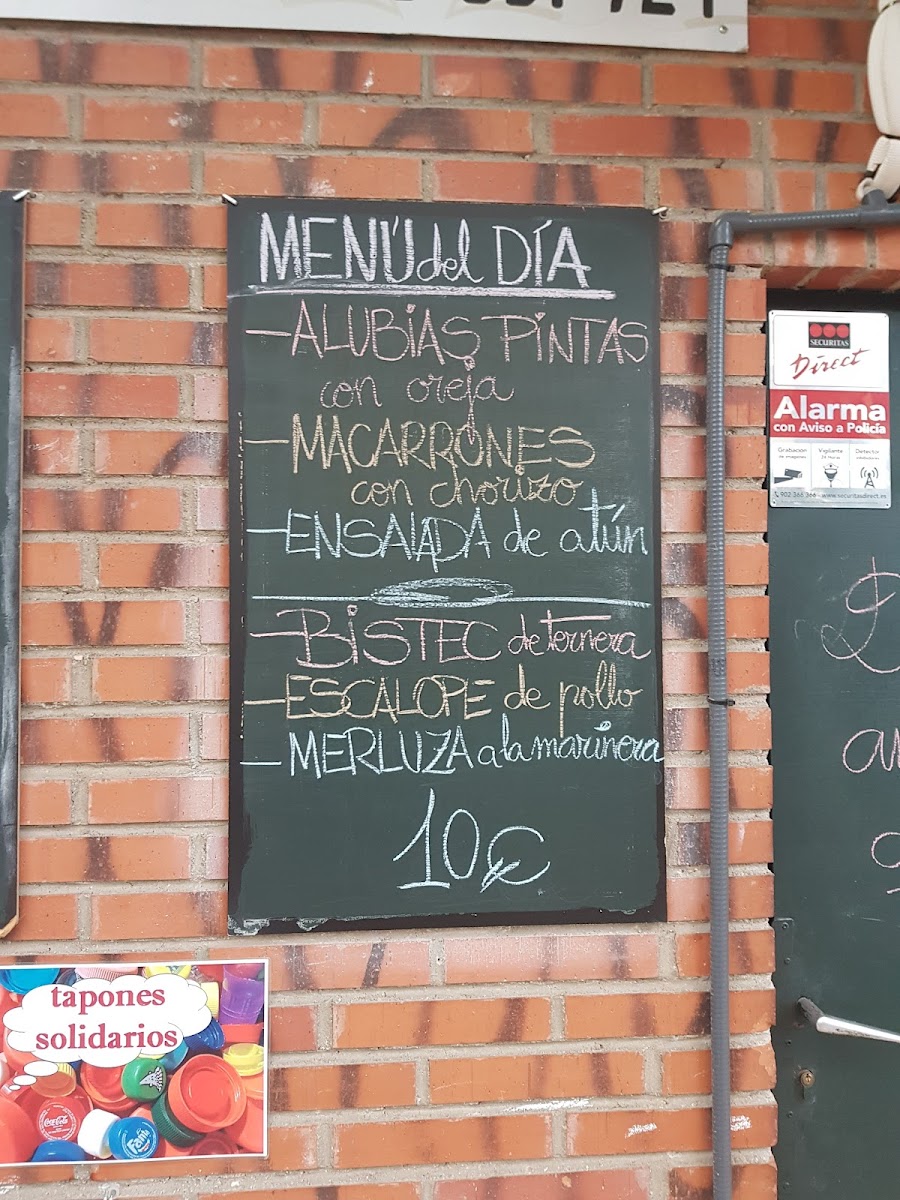 MENÚ del DÍA
- ALUBIAS PINTAS
con oreja
- MACARRONES
con chorizo
- ENSALADA de atún
- BISTEC de ternera
- ESCALOPE de pollo
- MERLUZA a la marinera
10€
SECURITAS
Direct
Alarma
con Aviso a Policía
Grabación
de imágenes
Vigilante
24 horas
Detector
902 366 366 - www.securitasdirect.es
tapones
solidarios
Coca-Cola
Fanta